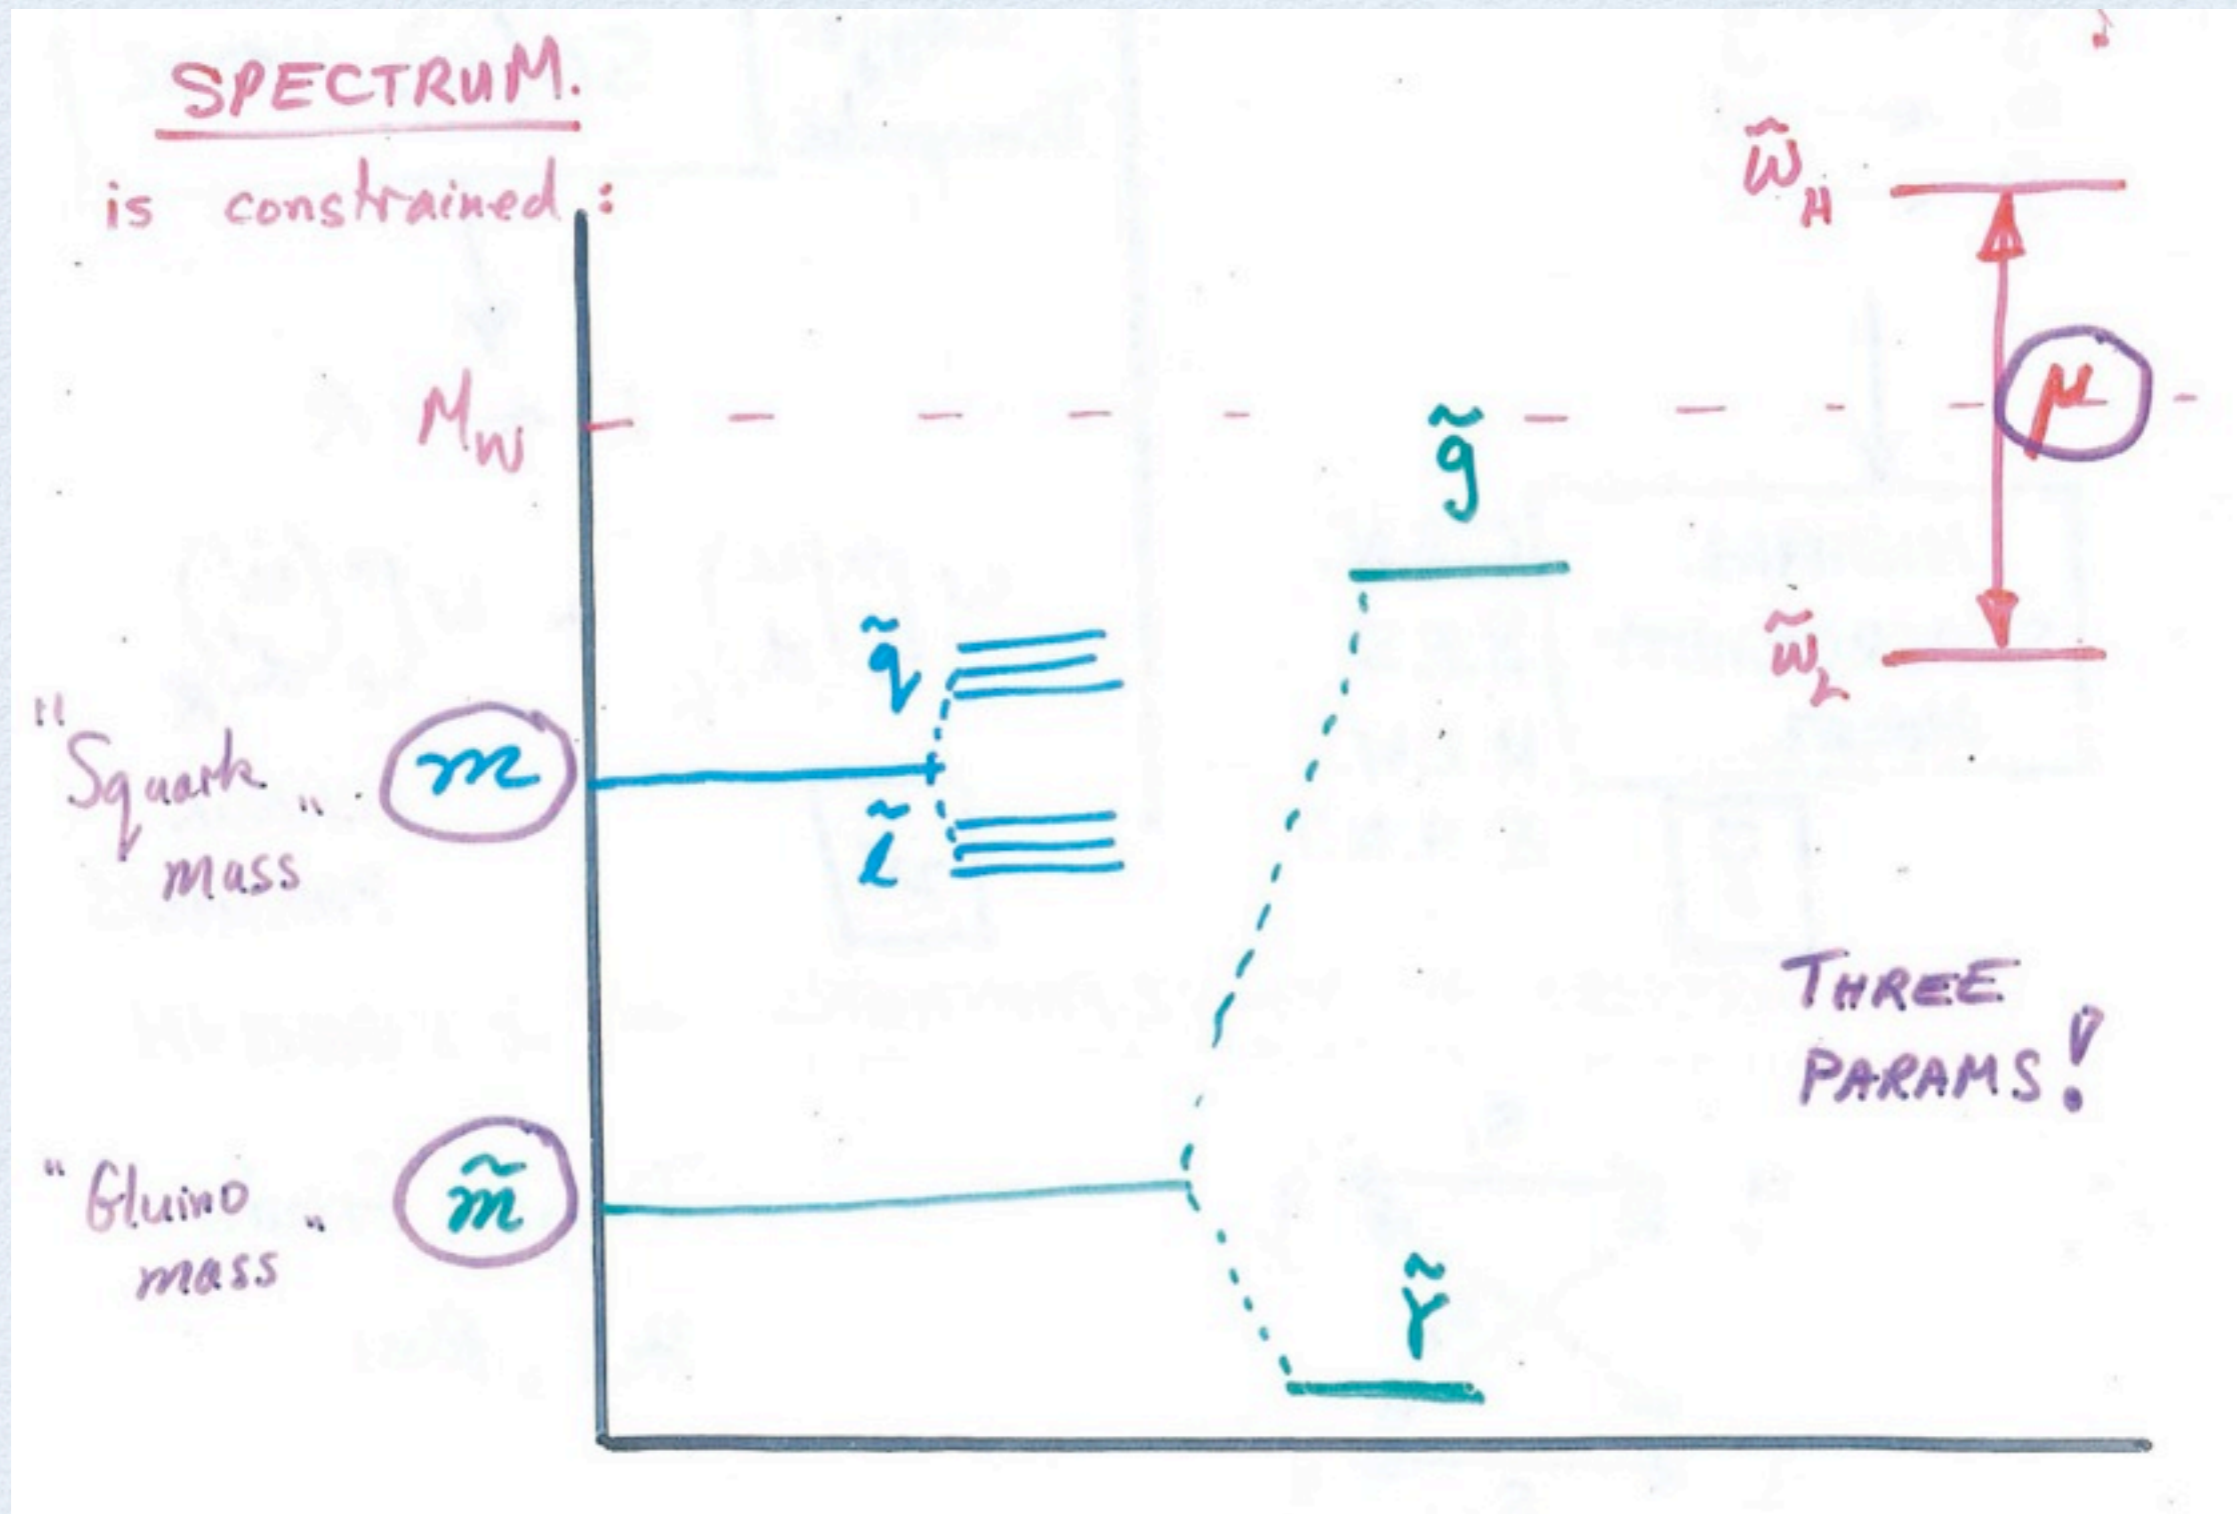 SPECTRUM.
is constrained :
w̃_H
M_W
μ
g̃
q̃
w̃_L
"Squark" m
mass
l̃
THREE
PARAMS!
"Gluino" m̃
mass
γ̃